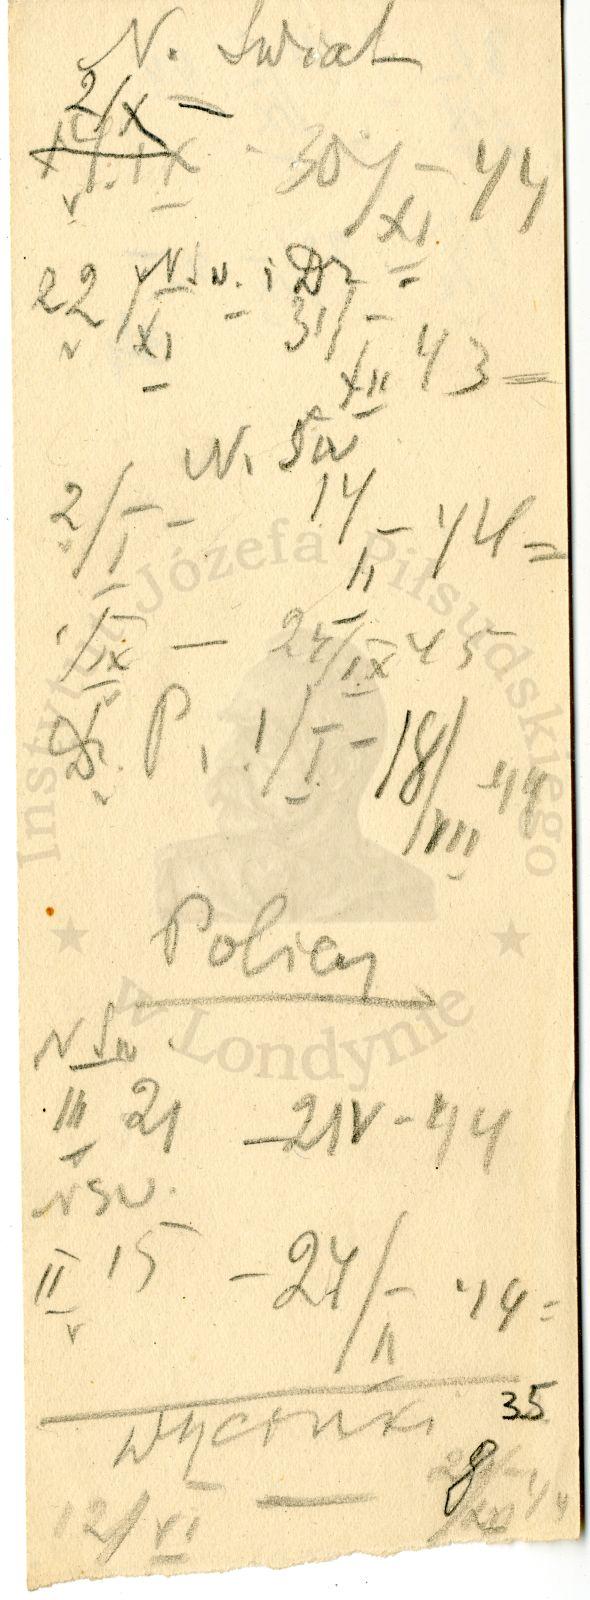 N. Świat
2/X –
30/XI – 44
22/XI N Św. i Dz – 31/XII – 43 =
N. Św
2/I – 14/II – 44 =
1/IX – 25/IX 45
Dz. P. 1/I – 18/VIII 44
Policy
N Św.
III 21 – 21 V – 44
N Św.
II 15 – 24/II 44 =
35
Wycinki
12/XI – 8
Instytut Józefa Piłsudskiego
w Londynie